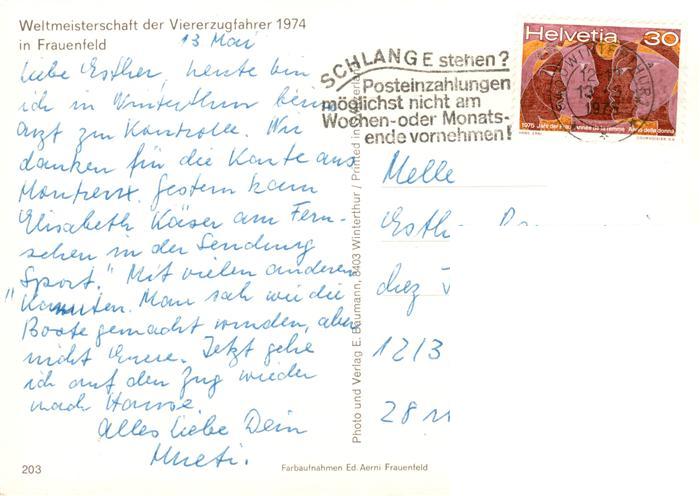 Weltmeisterschaft der Viererzugfahrer 1974
in Frauenfeld
13 Mai
liebe Esther, heute bin
ich in Winterthur beim
arzt zur Kontrolle. Wir
danken für die Karte aus
Montreux. gestern kam
Elisabeth Käser am Fern-
sehen in der Sendung
Sport." Mit vielen anderen
" Kanuten. Man sah wie die
Boote gemacht wurden, aber
nicht Euere. Jetzt gehe
ich auf den Zug wieder
nach Hause.
alles liebe Dein
Mueti.
203
Farbaufnahmen Ed. Aerni Frauenfeld
Photo und Verlag E. Baumann, 8403 Winterthur / Printed in Switzerland
SCHLANGE stehen?
Posteinzahlungen
möglichst nicht am
Wochen- oder Monats-
ende vornehmen!
Helvetia 30
WINTERTHUR
1975 Jahr der Frau Année de la femme Anno della donna
Melle
Esth
chez
1213
28